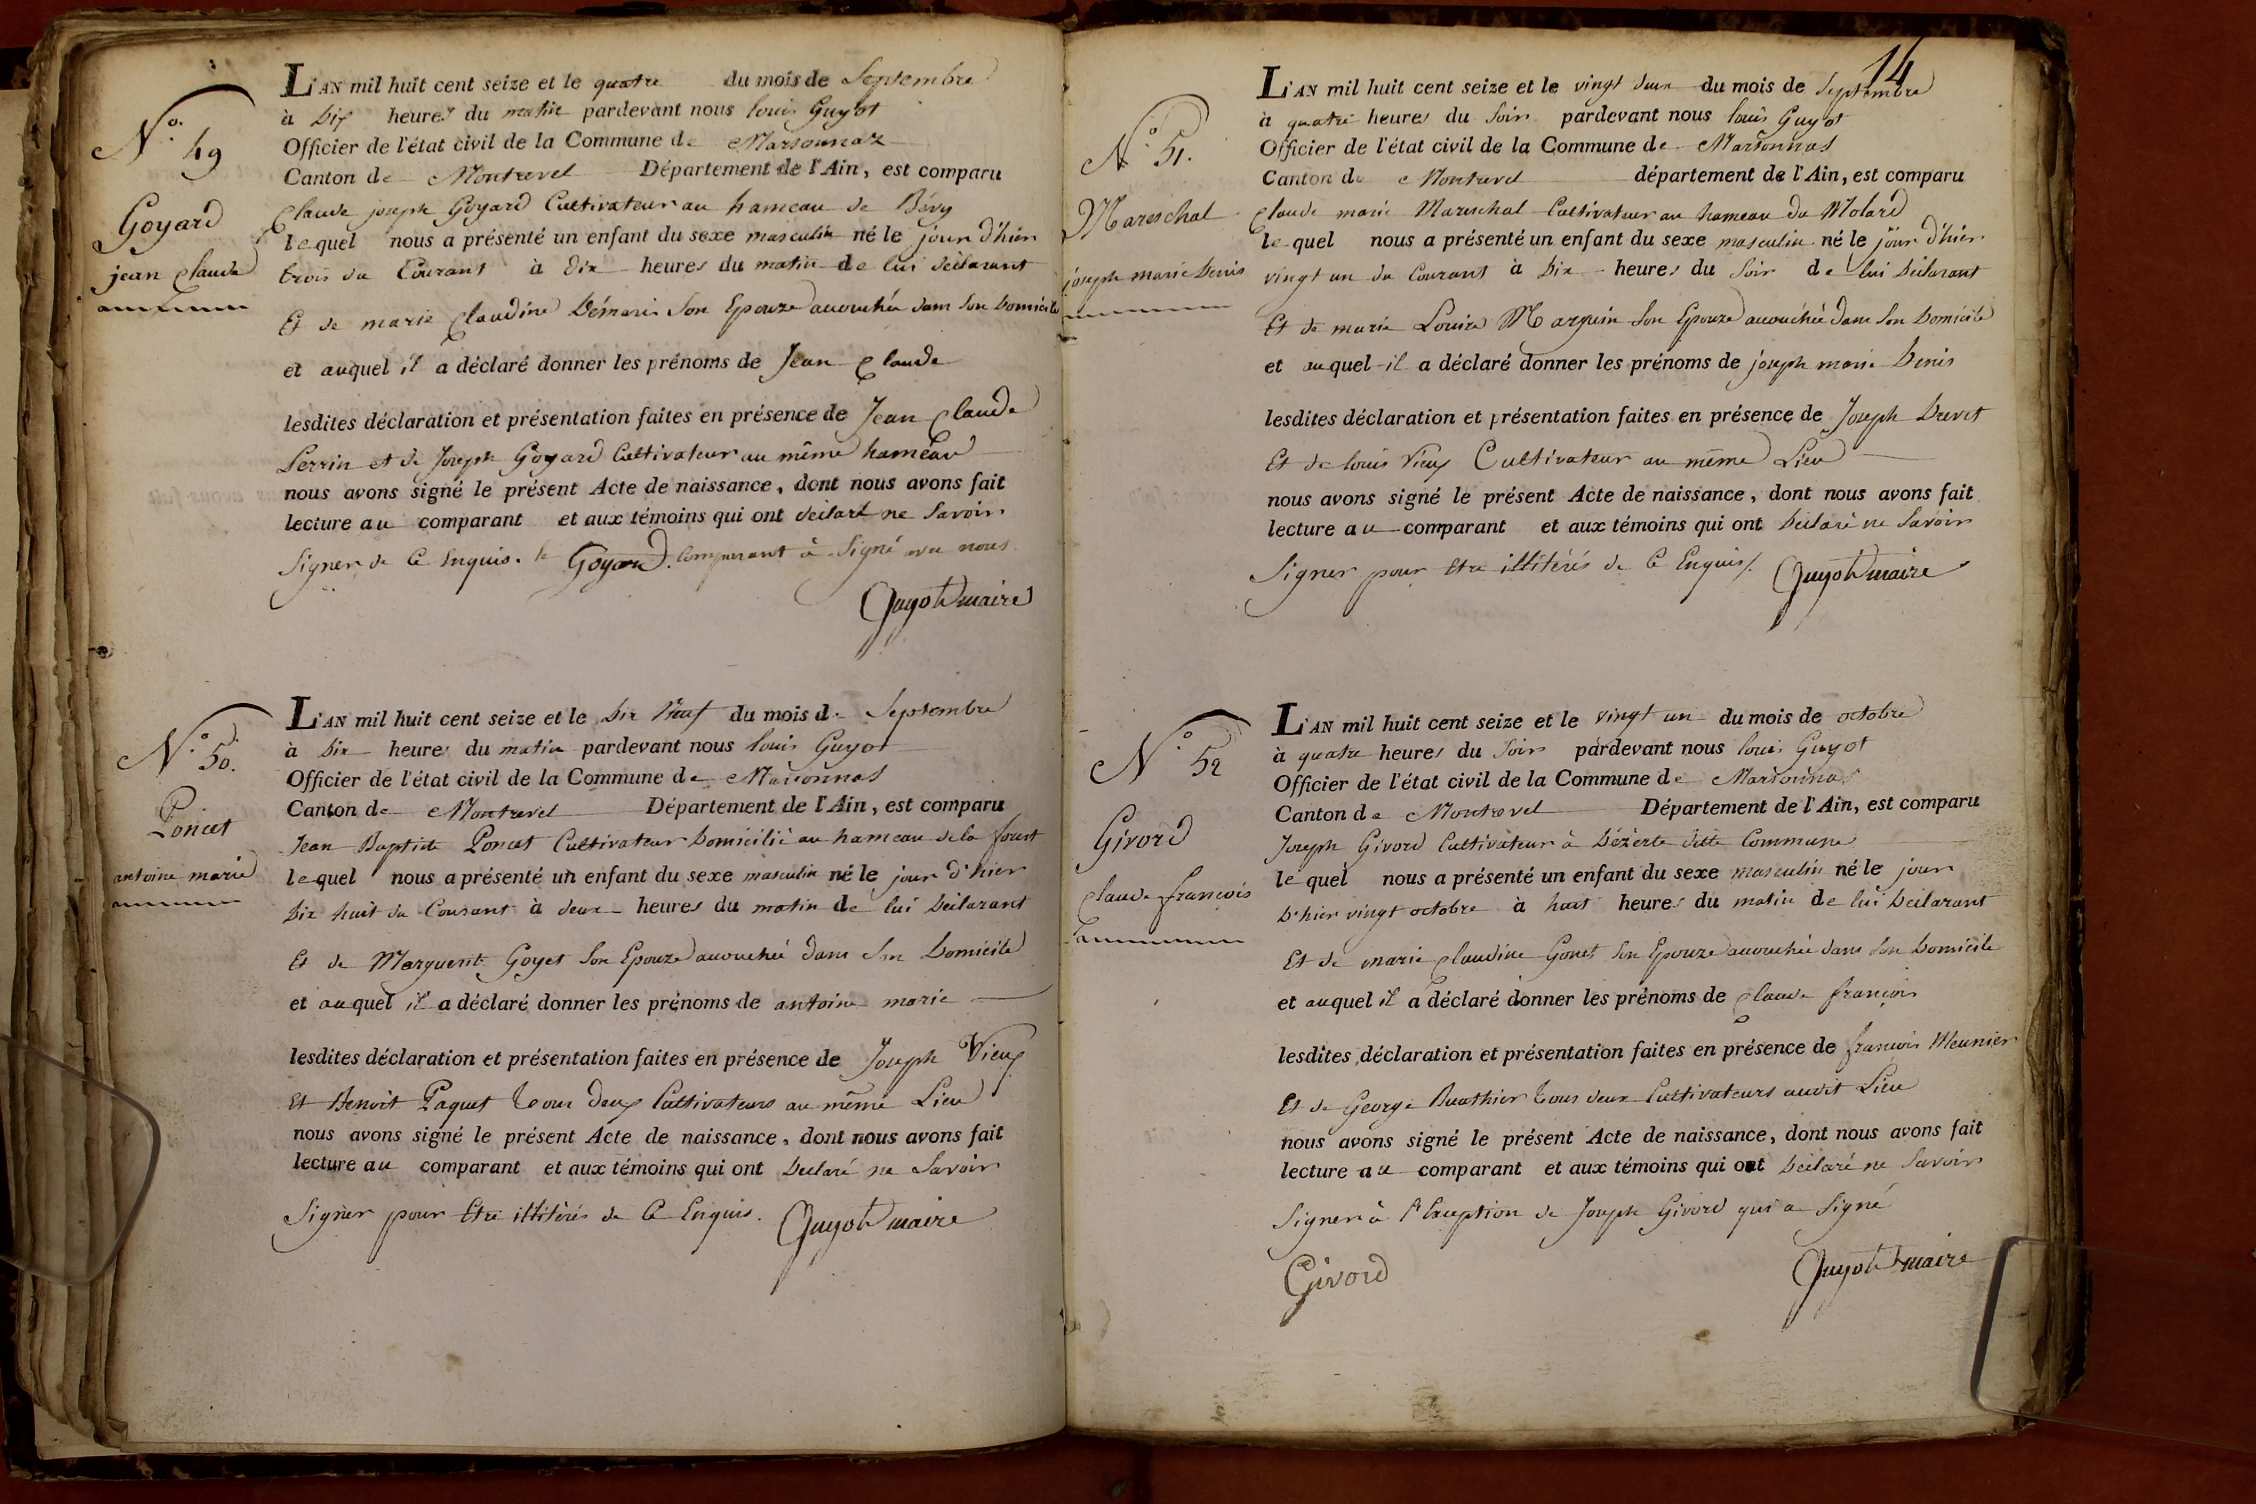 N.o 49
Goyard
jean Claude
L'AN mil huit cent seize et le quatre du mois de Septembre
à dix heures du matin pardevant nous louis Guyot
Officier de l'état civil de la Commune de Marsonnaz
Canton de Montrevel Département de l'Ain, est comparu
Claude joseph Goyard Cultivateur au hameau de Bévy
lequel nous a présenté un enfant du sexe masculin né le jour d'hier
trois du Courant à dix heures du matin de lui déclarant
Et de marie Claudine Démaris Son Epouze accouchée dans Son Domicile
et auquel il a déclaré donner les prénoms de Jean Claude
lesdites déclaration et présentation faites en présence de Jean Claude
Perrin et de Joseph Goyard Cultivateur au même hameau
nous avons signé le présent Acte de naissance, dont nous avons fait
lecture au comparant et aux témoins qui ont déclaré ne Savoir
Signer de Ce Enquis. le Goyard Comparant à Signé avec nous
Guyot maire
N.o 50.
Poncet
antoine marie
L'AN mil huit cent seize et le Dix Neuf du mois de Septembre
à Dix heures du matin pardevant nous louis Guyot
Officier de l'état civil de la Commune de Marsonnas
Canton de Montrevel Département de l'Ain, est comparu
Jean Baptiste Poncet Cultivateur Domicilié au hameau de la foret
lequel nous a présenté un enfant du sexe masculin né le jour d'hier
Dix huit du Courant à deux heures du matin de lui Déclarant
Et de Marguerite Goyet Son Epouze accouchée dans Son Domicile
et auquel il a déclaré donner les prénoms de antoine marie
lesdites déclaration et présentation faites en présence de Joseph Vieux
Et Benoit Paquet tous deux Cultivateurs au même Lieu
nous avons signé le présent Acte de naissance, dont nous avons fait
lecture au comparant et aux témoins qui ont Déclaré ne Savoir
Signer pour Etre illitérés de Ce Enquis. Guyot maire
14
N.o 51.
Mareschal
joseph marie Denis
L'AN mil huit cent seize et le vingt deux du mois de Septembre
à quatre heures du Soir pardevant nous louis Guyot
Officier de l'état civil de la Commune de Marsonnas
Canton de Montrevel département de l'Ain, est comparu
Claude marie Mareschal Cultivateur au hameau du Molard
lequel nous a présenté un enfant du sexe masculin né le jour d'hier
vingt un du Courant à Dix heures du Soir de lui Déclarant
Et de marie Louise Marguin Son Epouze accouchée dans Son Domicile
et auquel il a déclaré donner les prénoms de joseph marie Denis
lesdites déclaration et présentation faites en présence de Joseph Drevet
Et de louis Vieux Cultivateur au même Lieu
nous avons signé le présent Acte de naissance, dont nous avons fait
lecture au comparant et aux témoins qui ont Déclaré ne Savoir
Signer pour Etre illitérés de Ce Enquis. Guyot maire
N.o 52
Givord
Claude françois
L'AN mil huit cent seize et le vingt un du mois de octobre
à quatre heures du Soir pardevant nous louis Guyot
Officier de l'état civil de la Commune de Marsonnas
Canton de Montrevel Département de l'Ain, est comparu
Joseph Givord Cultivateur à Dézerte ditte Commune
lequel nous a présenté un enfant du sexe masculin né le jour
D'hier vingt octobre à huit heures du matin de lui Déclarant
Et de marie Claudine Gonet Son Epouze accouchée dans Son Domicile
et auquel il a déclaré donner les prénoms de Claude françois
lesdites déclaration et présentation faites en présence de françois Meunier
Et de George Buathier tous deux Cultivateurs audit Lieu
nous avons signé le présent Acte de naissance, dont nous avons fait
lecture au comparant et aux témoins qui ont Déclaré ne Savoir
Signer à l'Exception de Joseph Givord qui a Signé
Givord Guyot maire